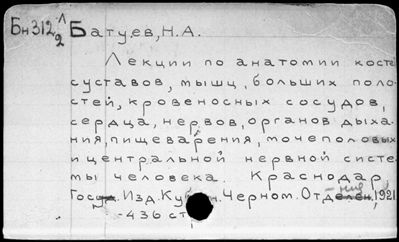 Бн312 Л/2 Батуев, Н.А.
Лекции по анатомии косте
суставов, мышц, больших поло-
стей, кровеносных сосудов,
сердца, нервов, органов дыха-
ния, пищеварения, мочеполовых
и центральной нервной систе-
мы человека. Краснодар,
Изд. Черном. 1921
-436 ст